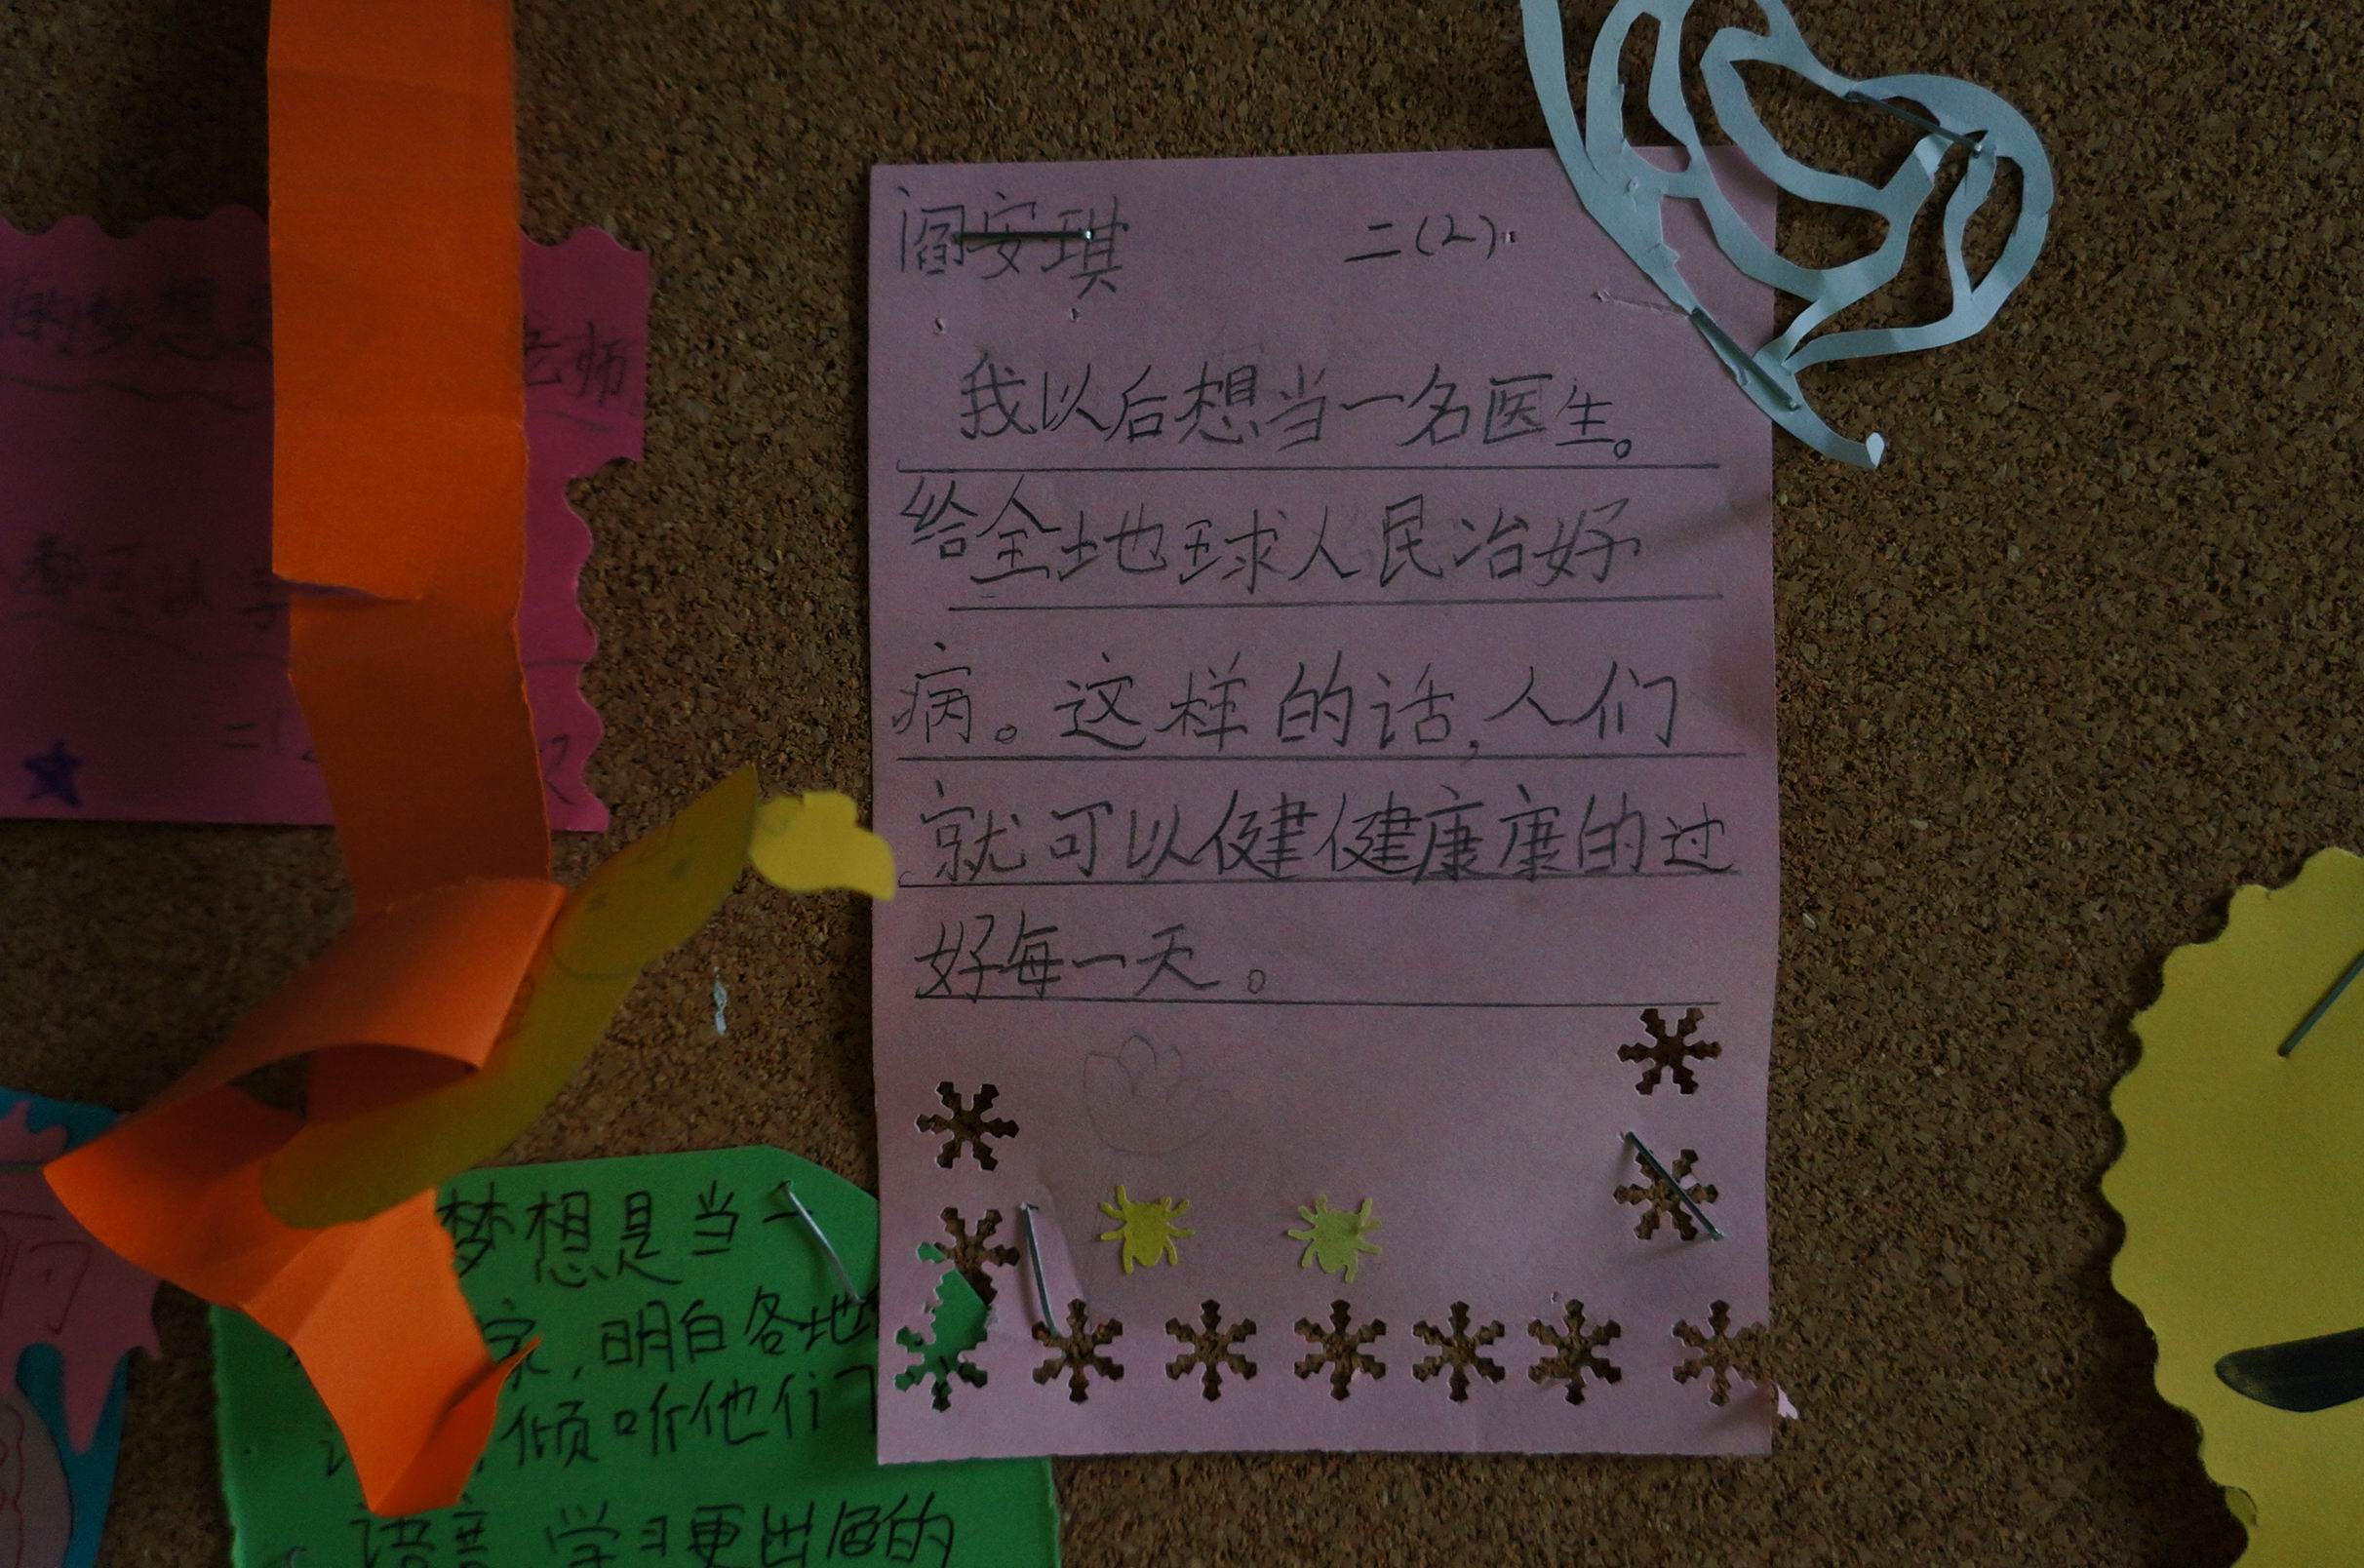 阎安琪 二(2)
我以后想当一名医生。
给全地球人民冶好
病。这样的话,人们
就可以健健康康的过
好每一天。
的梦想是
老师。
二(2
梦想是当一
家,明白各地
倾听他们
语言 学习更出色的
们